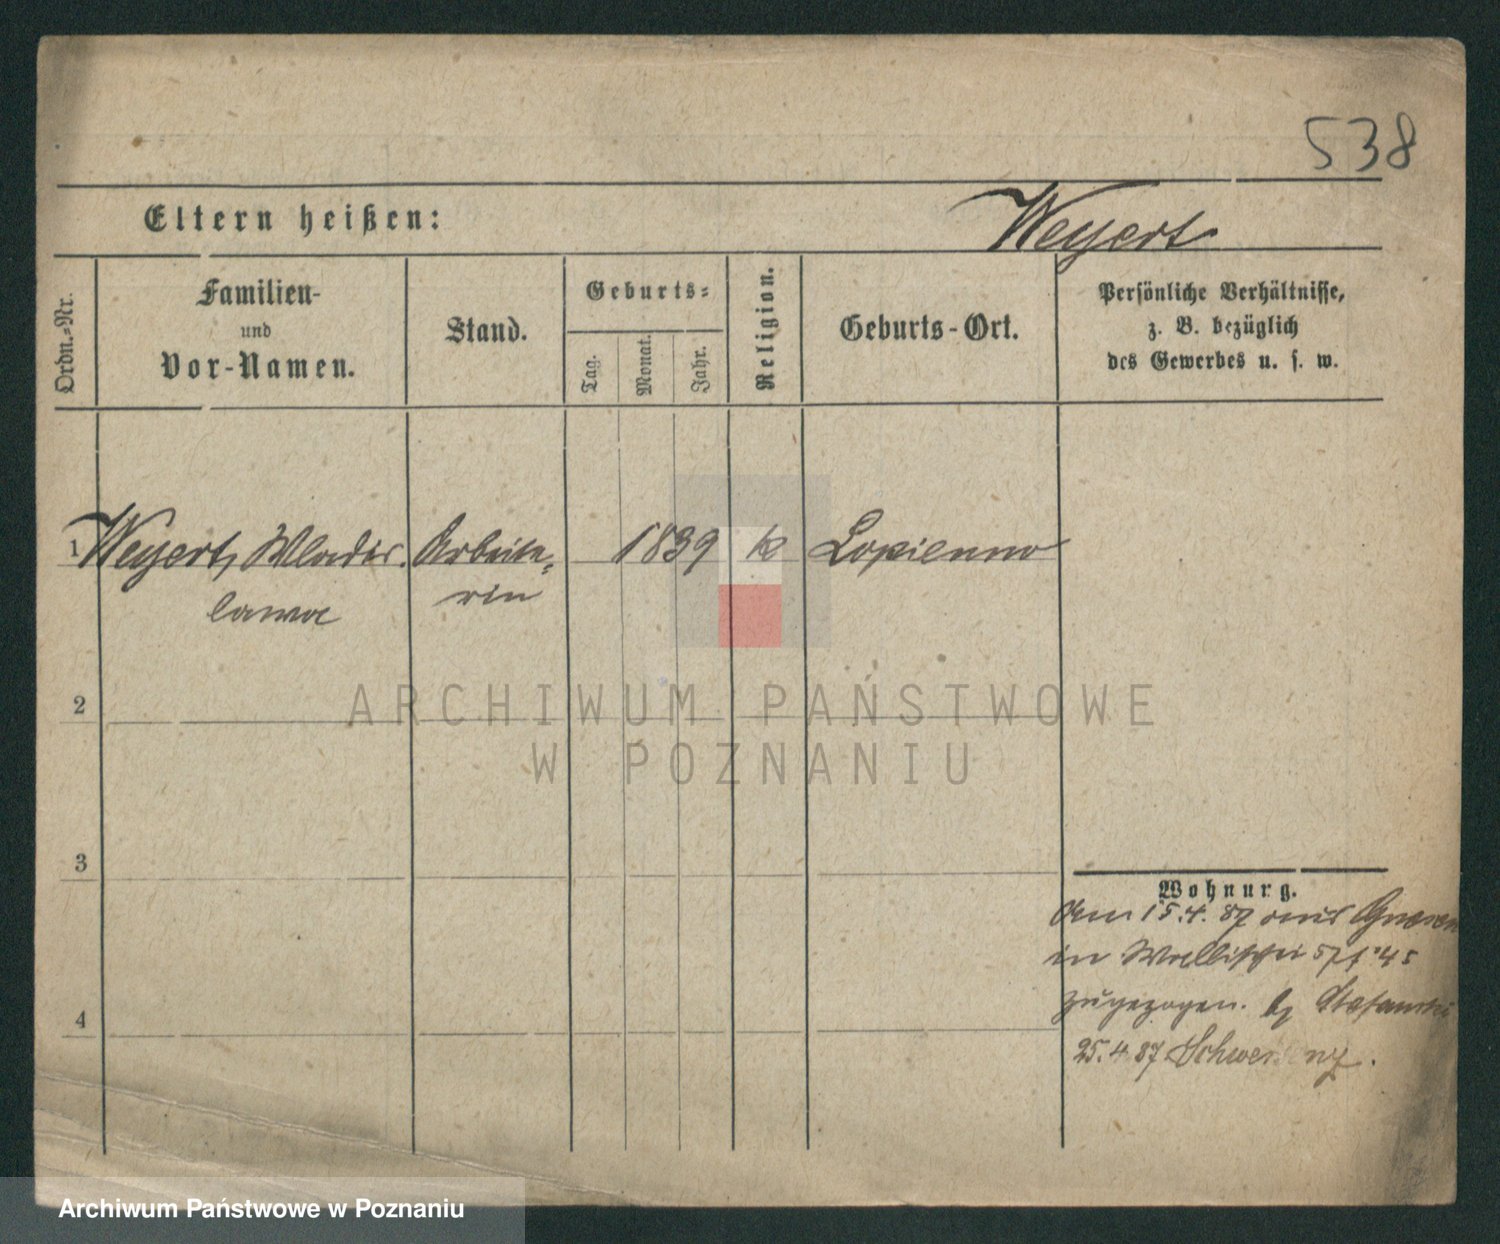 538
Eltern heißen:
Weyert
Ordn.-Nr.
Familien-
und
Vor-Namen.
Stand.
Geburts-
Tag.
Monat.
Jahr.
Religion.
Geburts-Ort.
Persönliche Verhältnisse,
z. B. bezüglich
des Gewerbes u. s. w.
1 Weyert, Wladis- Arbeite- 1839 k Lopienno
lawa rin
2
3
4
Wohnung.
Am 15.4.87 aus Gnesen
in Wallischei
zugezogen. by
25.4.87
ARCHIWUM PAŃSTWOWE
W POZNANIU
Archiwum Państwowe w Poznaniu